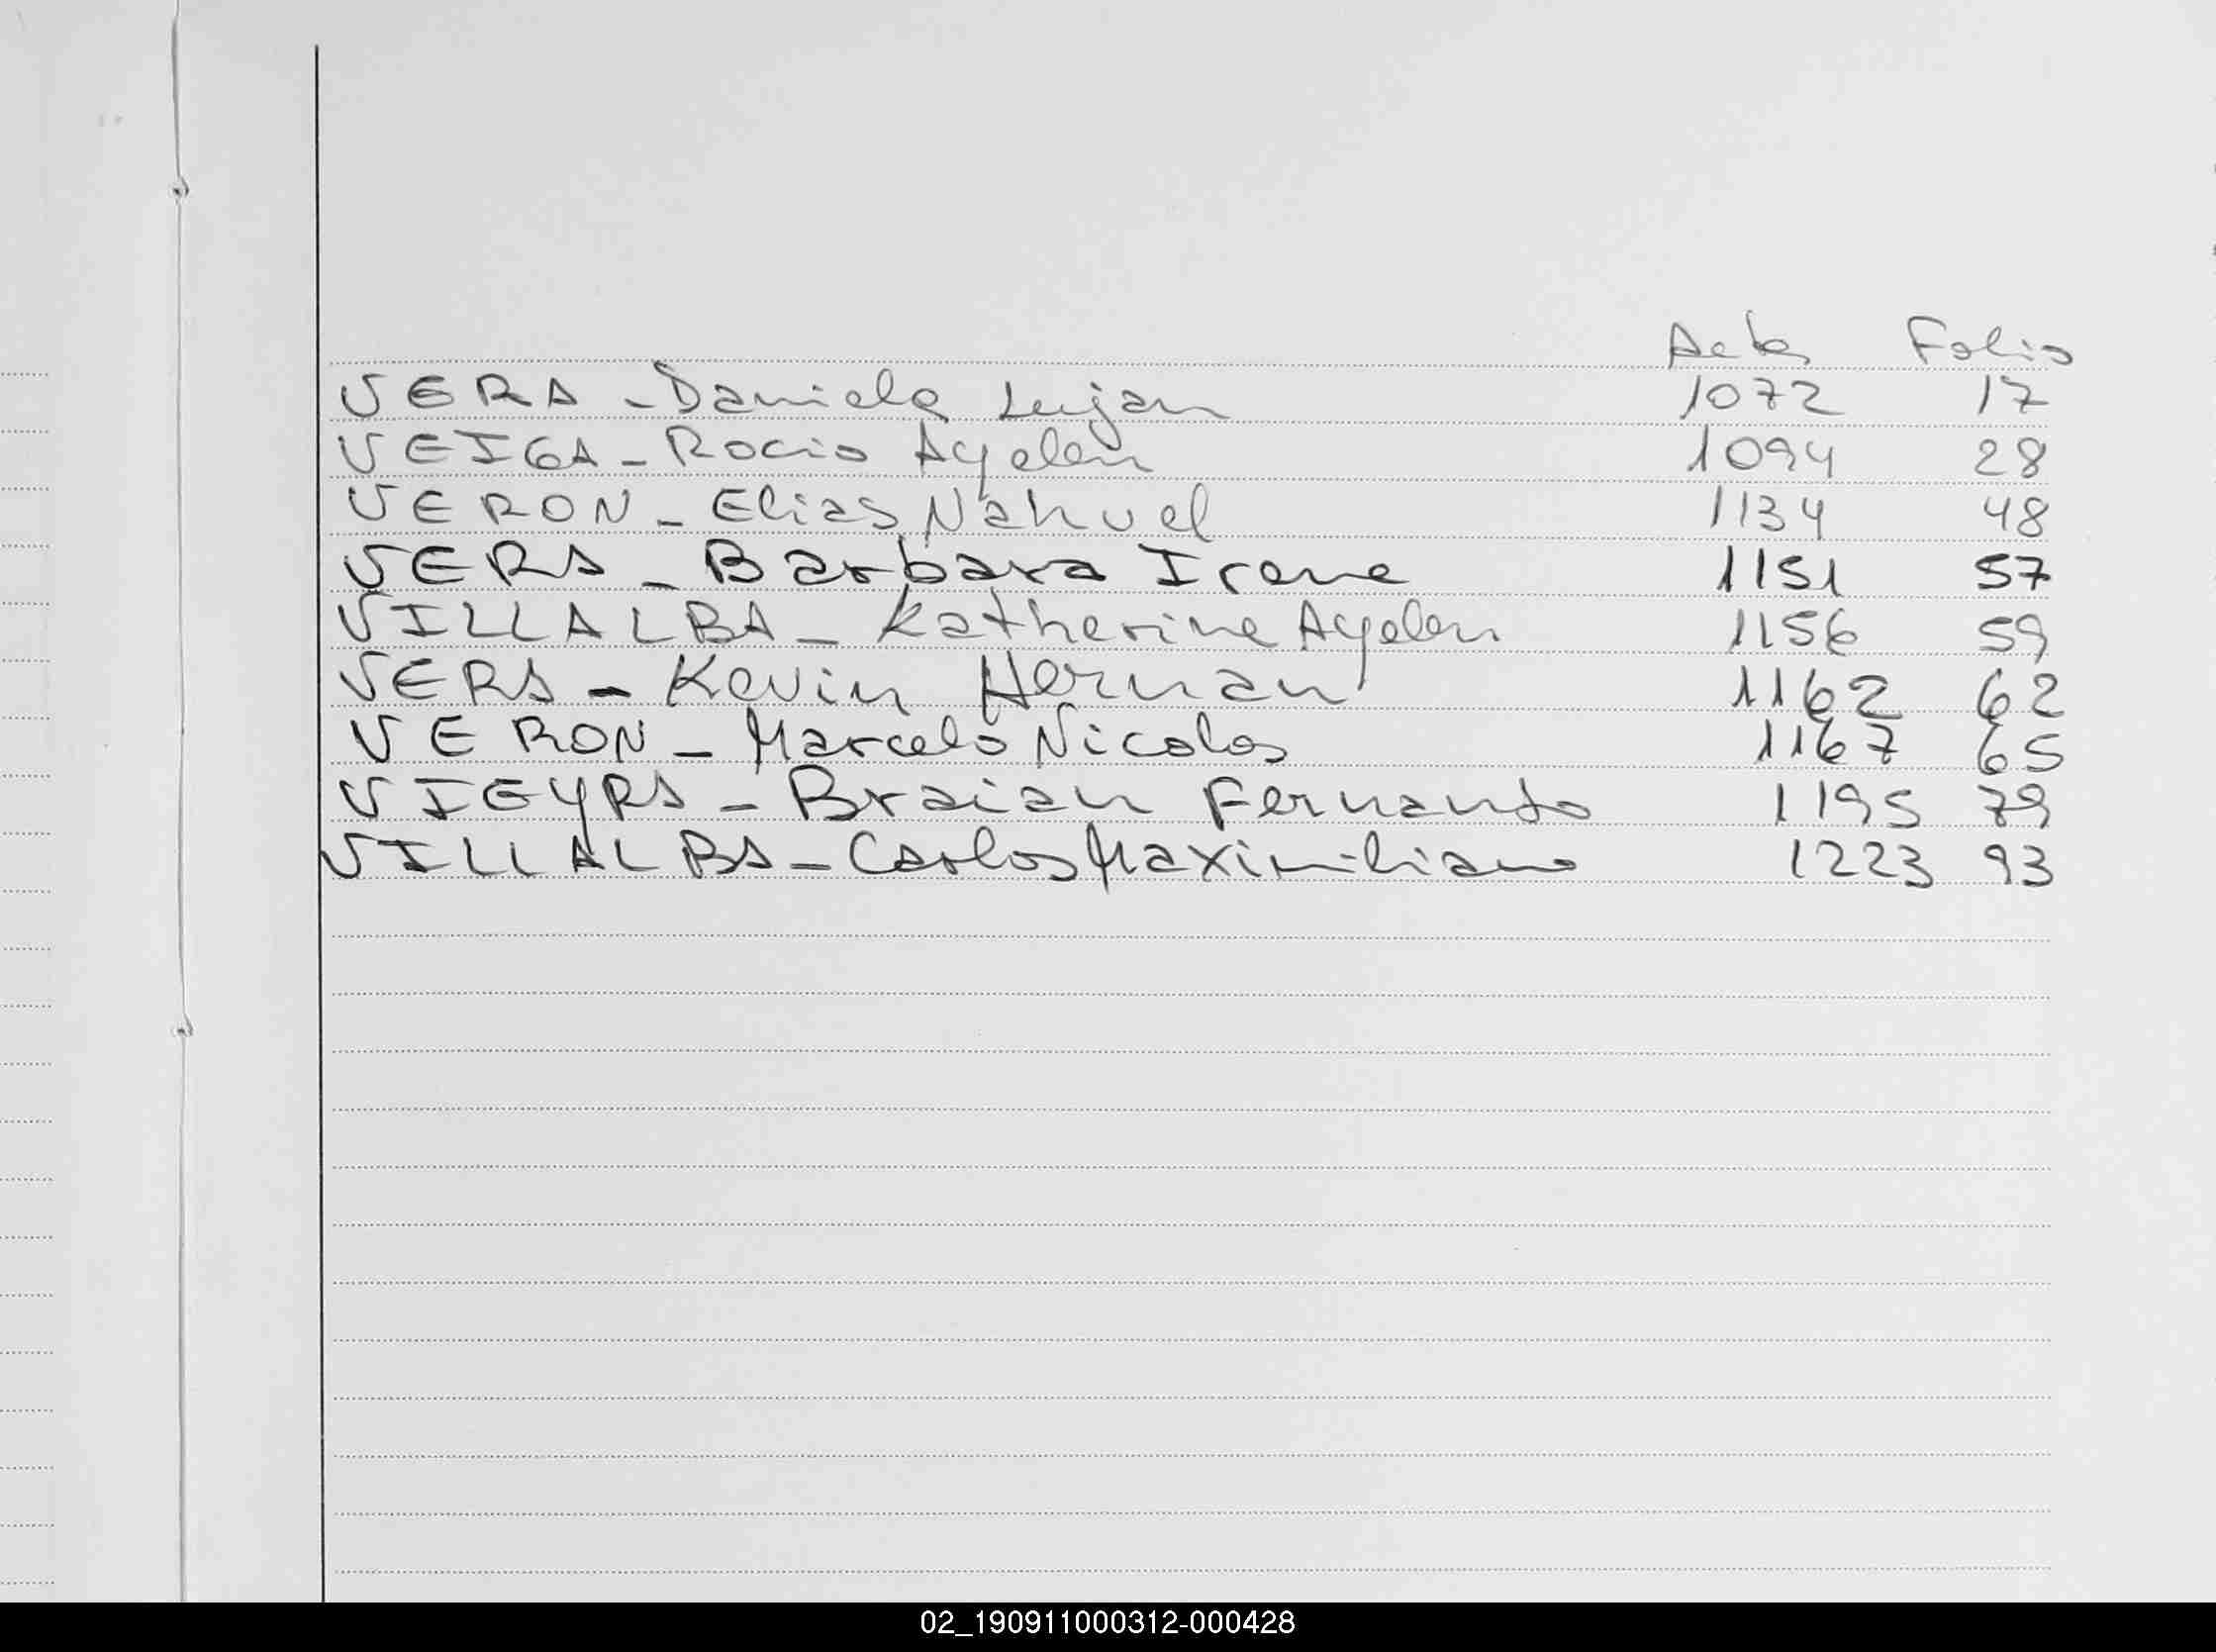 Acta Folio
VERA - Daniela Lujan 1072 17
VEIGA - Rocio Ayelen 1094 28
VERON - Elias Nahuel 1134 48
VERA - Barbara Irene 1151 57
VILLALBA - Katherine Ayelen 1156 59
VERA - Kevin Hernan 1162 62
VERON - Marcelo Nicolas 1167 65
VIEYRA - Braian Fernando 1195 79
VILLALBA - Carlos Maximiliano 1223 93
02_190911000312-000428